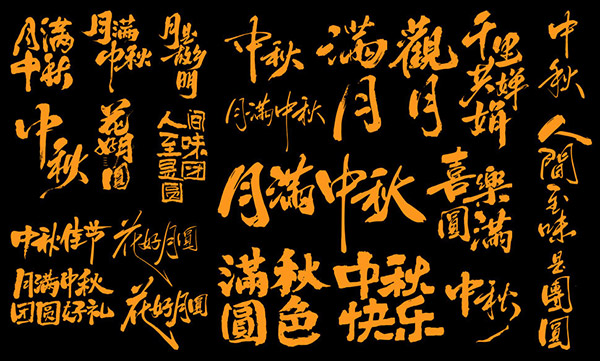 月满
中秋
月满
中秋
月是
故乡
明
中秋
花好月圓
人间至味
是团圆
中秋佳节
花好月圓
月满中秋
团圆好礼
花好月圓
中秋
月满中秋
满月
觀月
千里
共婵娟
月滿中秋
喜樂
圓滿
滿秋
圓色
中秋
快乐
中秋
中秋
人間至味是團圓